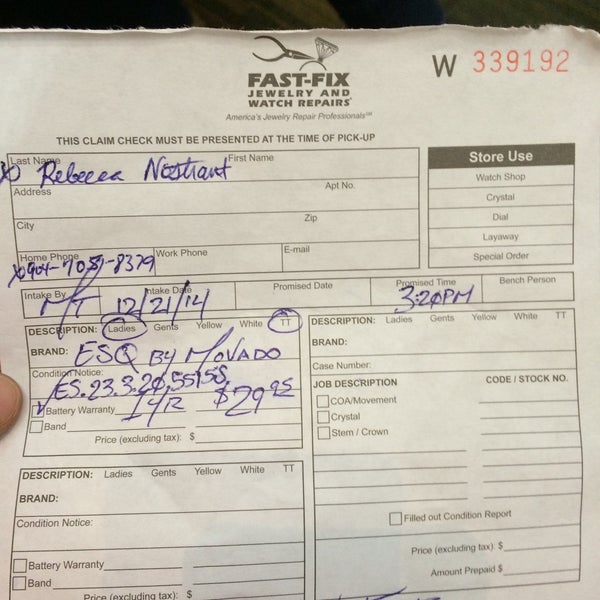 W 339192
FAST-FIX
JEWELRY AND
WATCH REPAIRS
America's Jewelry Repair Professionals SM
THIS CLAIM CHECK MUST BE PRESENTED AT THE TIME OF PICK-UP
Last Name First Name
Rebecca Nostrant
Address Apt No.
City Zip
Home Phone Work Phone E-mail
Store Use
Watch Shop
Crystal
Dial
Layaway
Special Order
Intake By Intake Date Promised Date Promised Time Bench Person
MT 12/21/14 3:20PM
DESCRIPTION: Ladies Gents Yellow White TT
BRAND: ESQ BY MOVADO
Condition Notice:
Battery Warranty 1YR $29.95
Band
Price (excluding tax): $
DESCRIPTION: Ladies Gents Yellow White TT
BRAND:
Case Number:
JOB DESCRIPTION CODE / STOCK NO.
COA/Movement
Crystal
Stem / Crown
Filled out Condition Report
Price (excluding tax) $
Amount Prepaid $
DESCRIPTION: Ladies Gents Yellow White TT
BRAND:
Condition Notice:
Battery Warranty
Band
Price (excluding tax): $